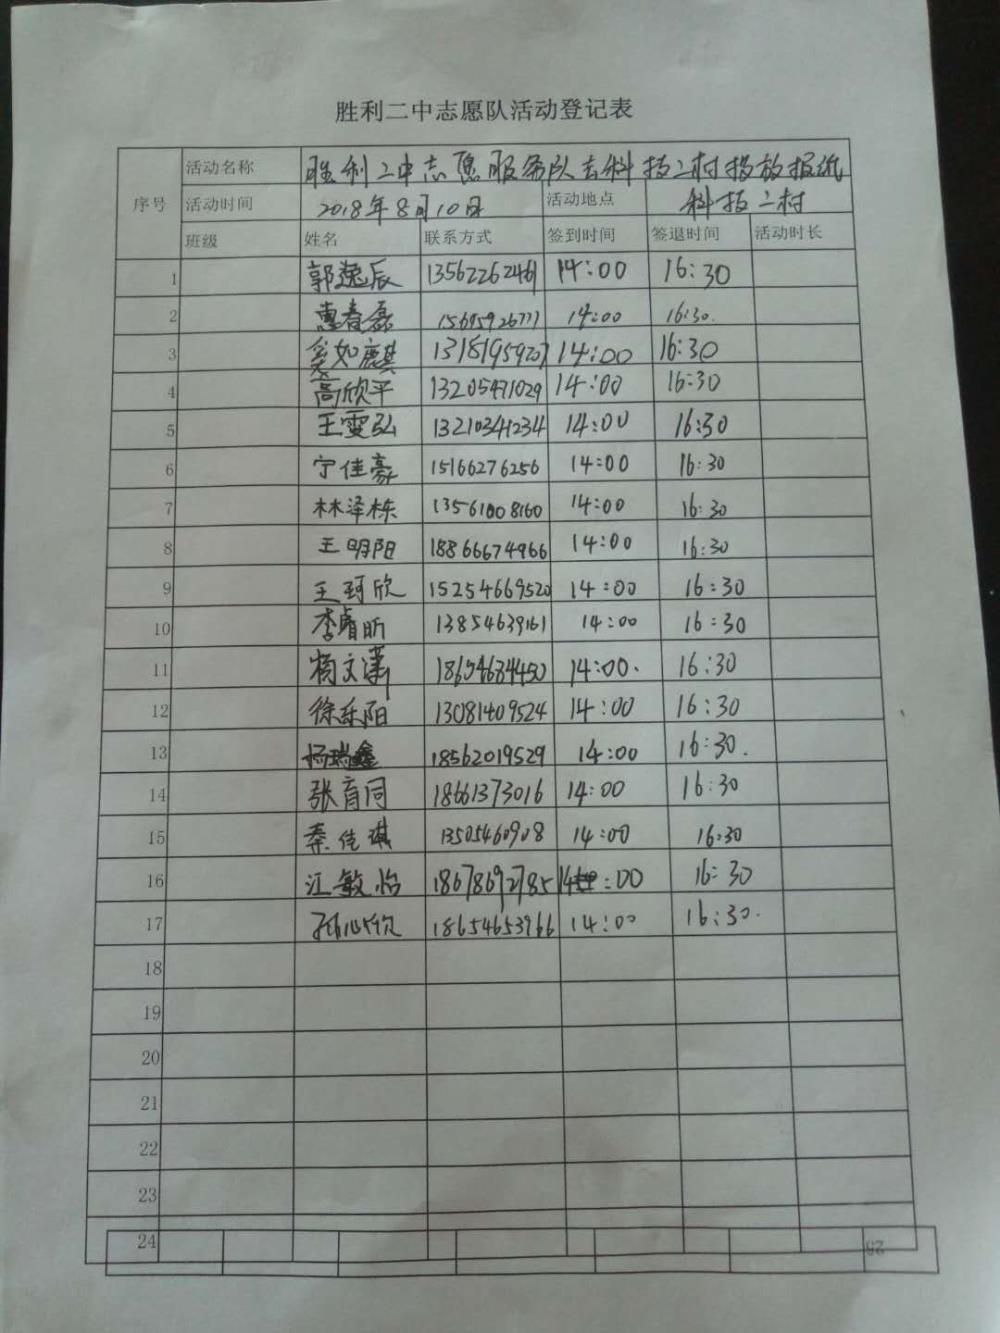 胜利二中志愿队活动登记表
序号 活动名称 胜利二中志愿服务队去科技二村投放报纸
活动时间 2018年8月10日 活动地点 科技二村
班级 姓名 联系方式 签到时间 签退时间 活动时长
1 郭逸辰 13562262461 14:00 16:30
2 惠春磊 14:00 16:30.
3 奚如麒 14:00 16:30
4 高欣平 13205471029 14:00 16:30
5 王雯弘 13210341234 14:00 16:30
6 宁佳豪 15166276256 14:00 16:30
7 林泽栋 13561008160 14:00 16:30
8 王明阳 18866674966 14:00 16:30
9 王珂欣 15254669520 14:00 16:30
10 李睿昕 13854639161 14:00 16:30
11 杨文潇 14:00. 16:30
12 徐乐阳 13081409524 14:00 16:30
13 杨瑞鑫 18562019529 14:00 16:30.
14 张育同 18661373016 14:00 16:30
15 秦佳琪 13505460908 14:00 16:30
16 江敏怡 18678692785 14:00 16:30
17 孙心欣 18654653966 14:00 16:30.
18
19
20
21
22
23
24
25